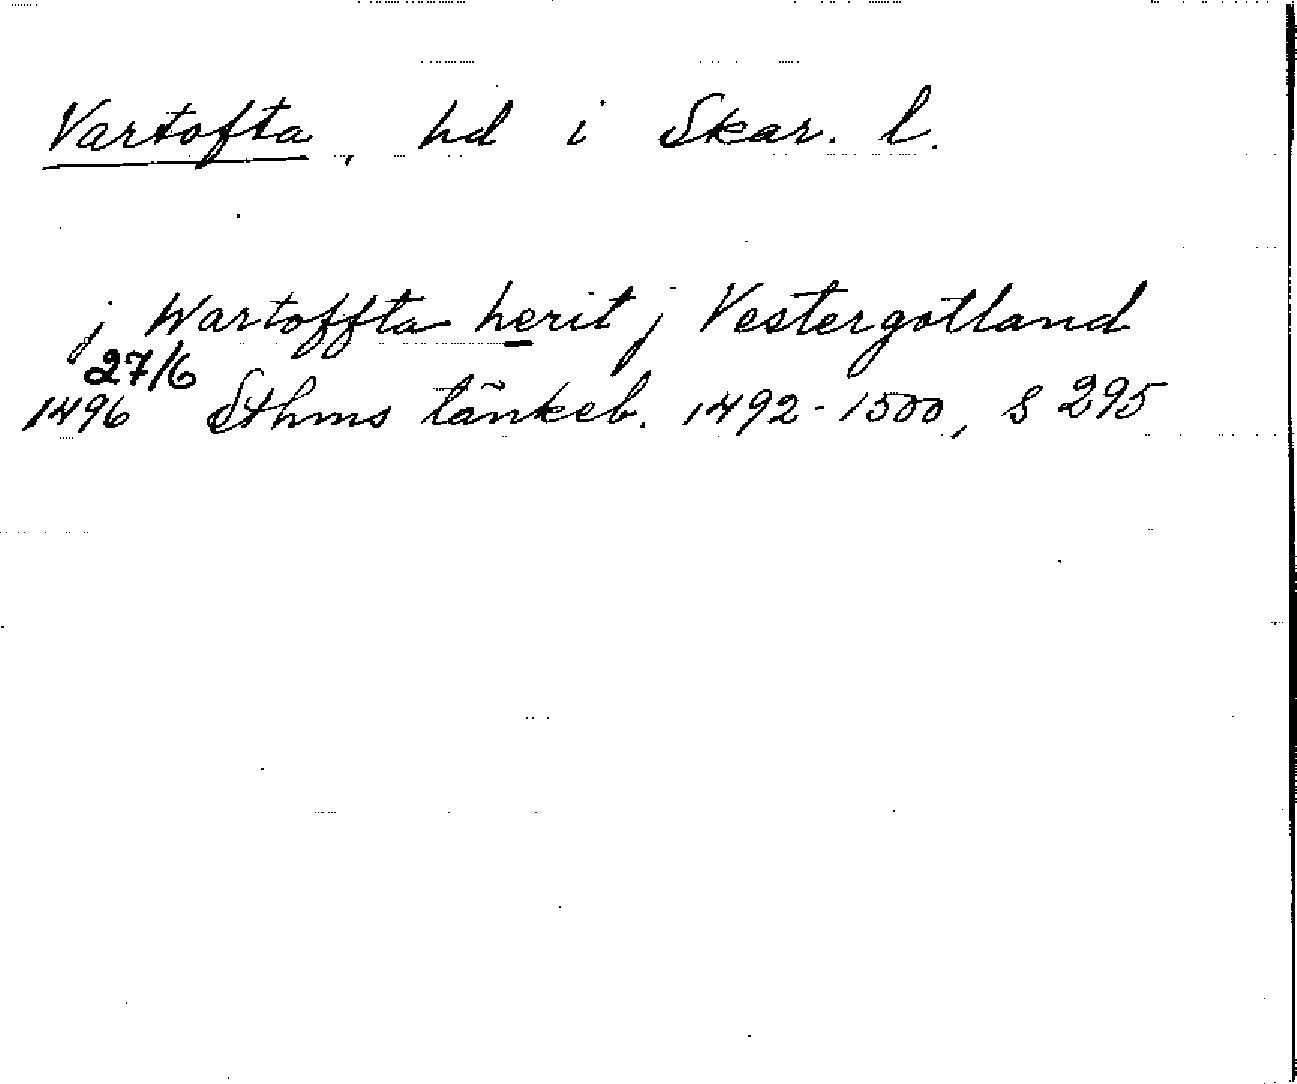 Vartofta, hd i Skar. l.
j Wartoffta herit j Vestergotland
27/6
1496 Sthms tänkeb. 1492-1500, s 295